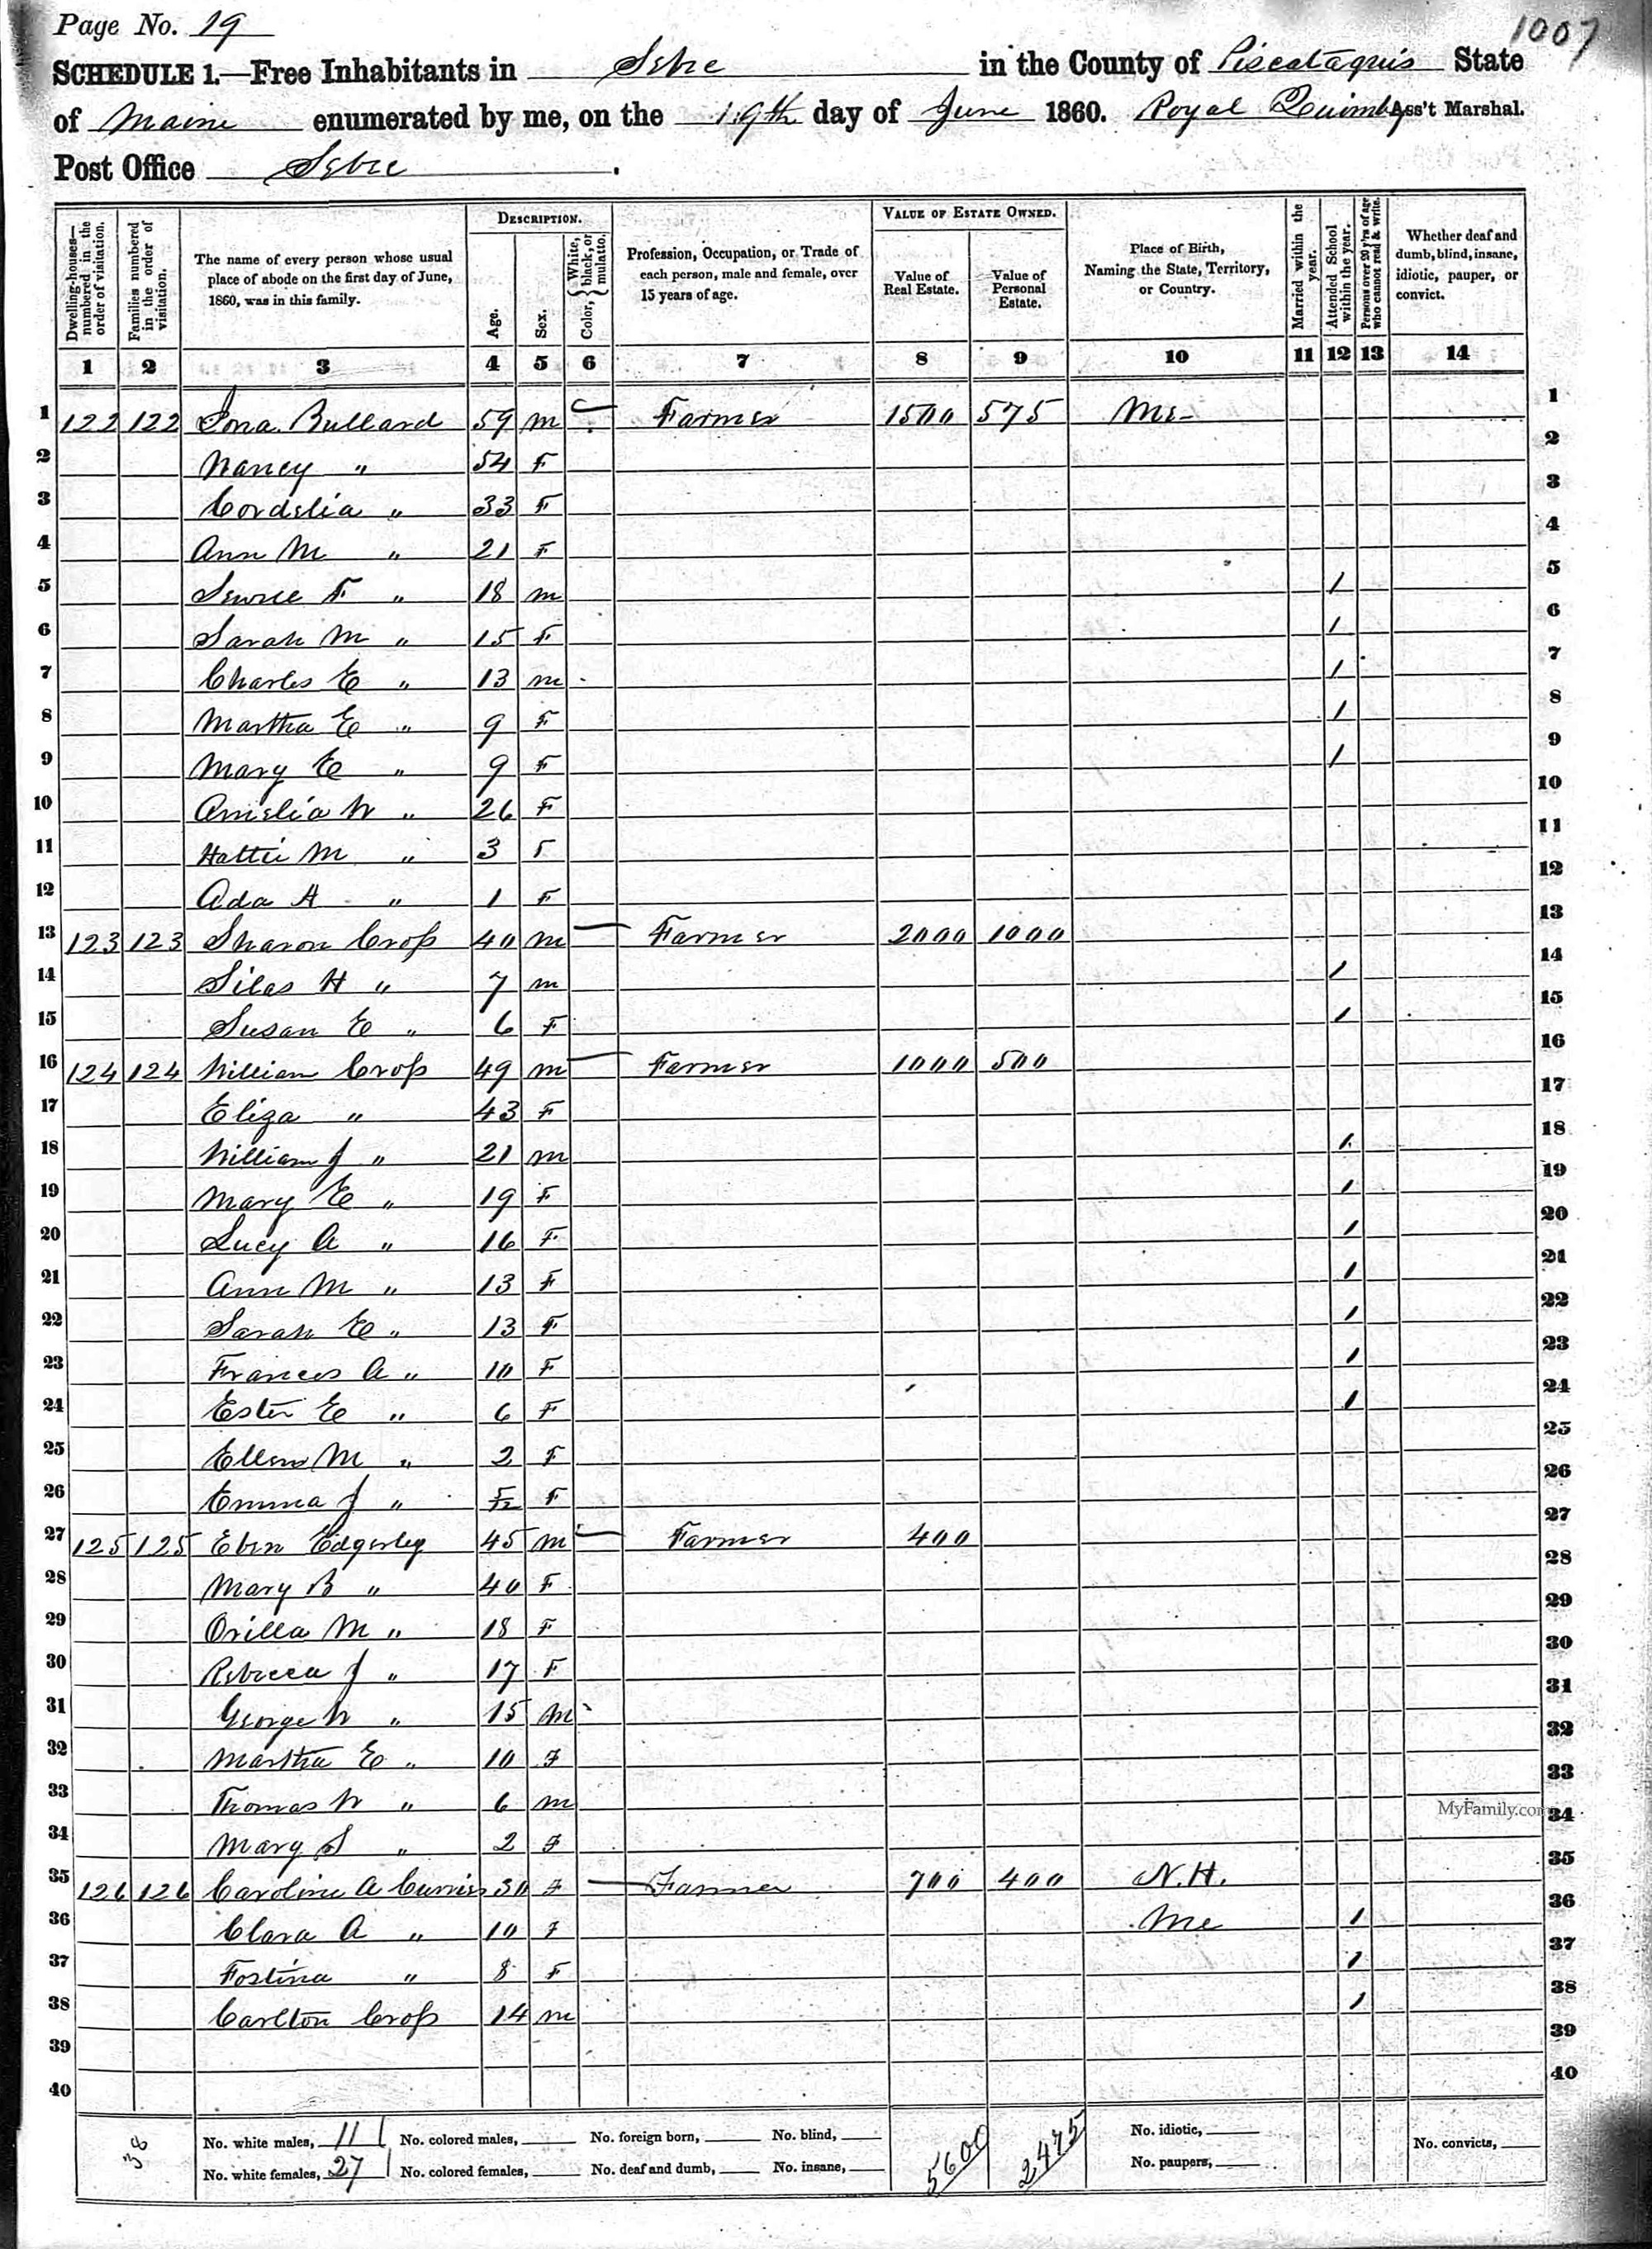 Page No. 19
1007
SCHEDULE 1.—Free Inhabitants in Sebec in the County of Piscataquis State
of Maine enumerated by me, on the 19th day of June 1860. Royal Quimby Ass't Marshal.
Post Office Sebec.
Dwelling-houses—numbered in the order of visitation. Families numbered in the order of visitation. The name of every person whose usual place of abode on the first day of June, 1860, was in this family. DESCRIPTION. Age. Sex. Color, {White, black, or mulatto. Profession, Occupation, or Trade of each person, male and female, over 15 years of age. VALUE OF ESTATE OWNED. Value of Real Estate. Value of Personal Estate. Place of Birth, Naming the State, Territory, or Country. Married within the year. Attended School within the year. Persons over 20 y'rs of age who cannot read & write. Whether deaf and dumb, blind, insane, idiotic, pauper, or convict.
1 2 3 4 5 6 7 8 9 10 11 12 13 14
1 122 122 Bullard 59 m Farmer 1500 575 Me- 1
2 Nancy " 54 F 2
3 Cordelia " 33 F 3
4 Ann M " 21 F 4
5 F " 18 m / 5
6 Sarah M " 15 F / 6
7 Charles E " 13 m / 7
8 Martha E " 9 F / 8
9 Mary E " 9 F / 9
10 Amelia W " 26 F 10
11 Hattie M " 3 F 11
12 Ada H " 1 F 12
13 123 123 Sharon Cross 40 m Farmer 2000 1000 13
14 Silas H " 7 m / 14
15 Susan E " 6 F / 15
16 124 124 William Cross 49 m Farmer 1000 500 16
17 Eliza " 43 F 17
18 William J " 21 m / 18
19 Mary E " 19 F / 19
20 Lucy A " 16 F / 20
21 Ann M " 13 F / 21
22 Sarah E " 13 F / 22
23 Frances A " 10 F / 23
24 Ester E " 6 F / 24
25 Ellen M " 2 F 25
26 Emma J " 5/12 F 26
27 125 125 Eben Edgerley 45 m Farmer 400 27
28 Mary B " 40 F 28
29 Orilla M " 18 F 29
30 Rebecca J " 17 F 30
31 George W " 15 m 31
32 Martha E " 10 F 32
33 Thomas W " 6 m 33
34 Mary S " 2 F 34
35 126 126 Caroline A Currier 30 F Farmer 700 400 N.H. 35
36 Clara A " 10 F Me / 36
37 Fostina " 8 F / 37
38 Carlton Cross 14 m / 38
39 39
40 40
MyFamily.com
38 No. white males, 11 No. colored males, No. foreign born, No. blind, 5600 2475 No. idiotic, No. convicts,
No. white females, 27 No. colored females, No. deaf and dumb, No. insane, No. paupers,